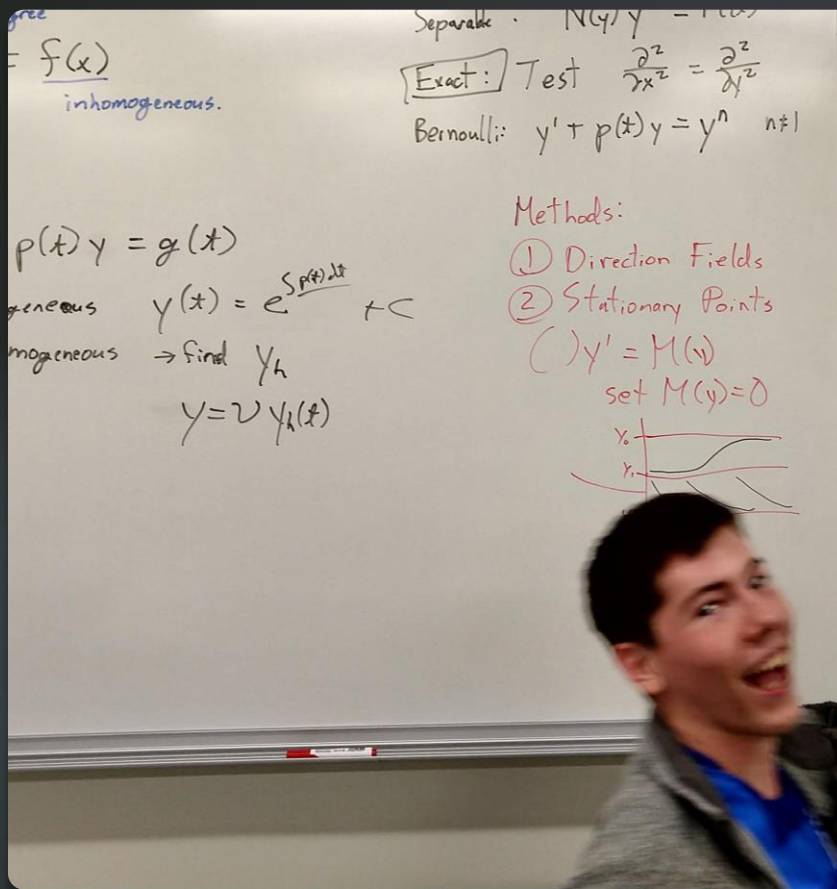 = f(x)
inhomogeneous.
p(t) y = g(t)
y(t) = e^∫p(t)dt + C
→ find y_h
y = v y_h(t)
Separable.
Exact: Test ∂²/∂x² = ∂²/∂y²
Bernoulli: y' + p(t) y = y^n n≠1
Methods:
① Direction Fields
② Stationary Points
( ) y' = M(y)
set M(y)=0
Y₀
Y₁